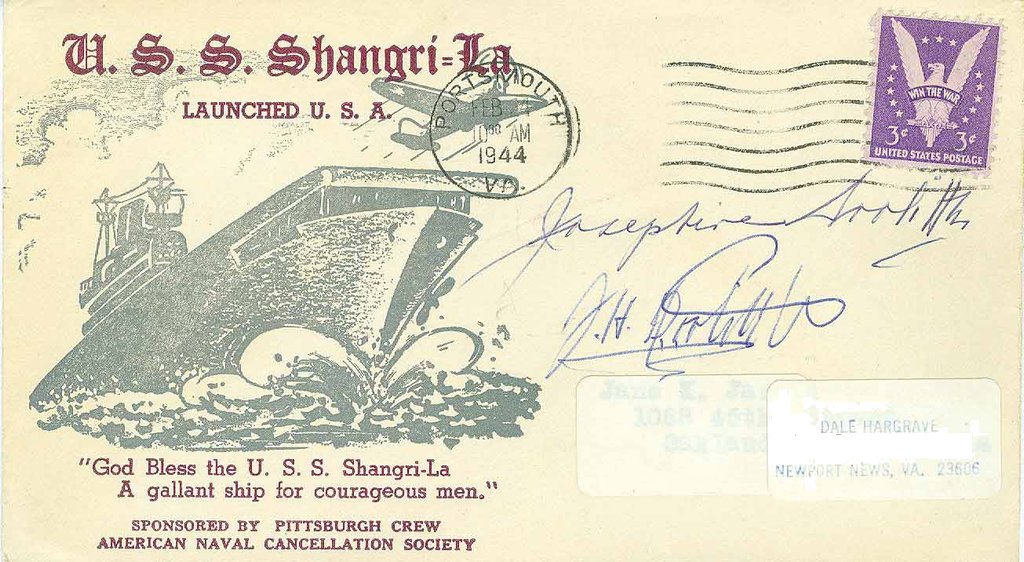 U. S. S. Shangri-La
LAUNCHED U. S. A.
PORTSMOUTH
FEB
10 00 AM
1944
VA.
WIN THE WAR
3¢ 3¢
UNITED STATES POSTAGE
Josephine Doolittle
J.H. Doolittle
Jane
1068
DALE HARGRAVE
NEWPORT NEWS, VA. 23606
"God Bless the U. S. S. Shangri-La
A gallant ship for courageous men."
SPONSORED BY PITTSBURGH CREW
AMERICAN NAVAL CANCELLATION SOCIETY